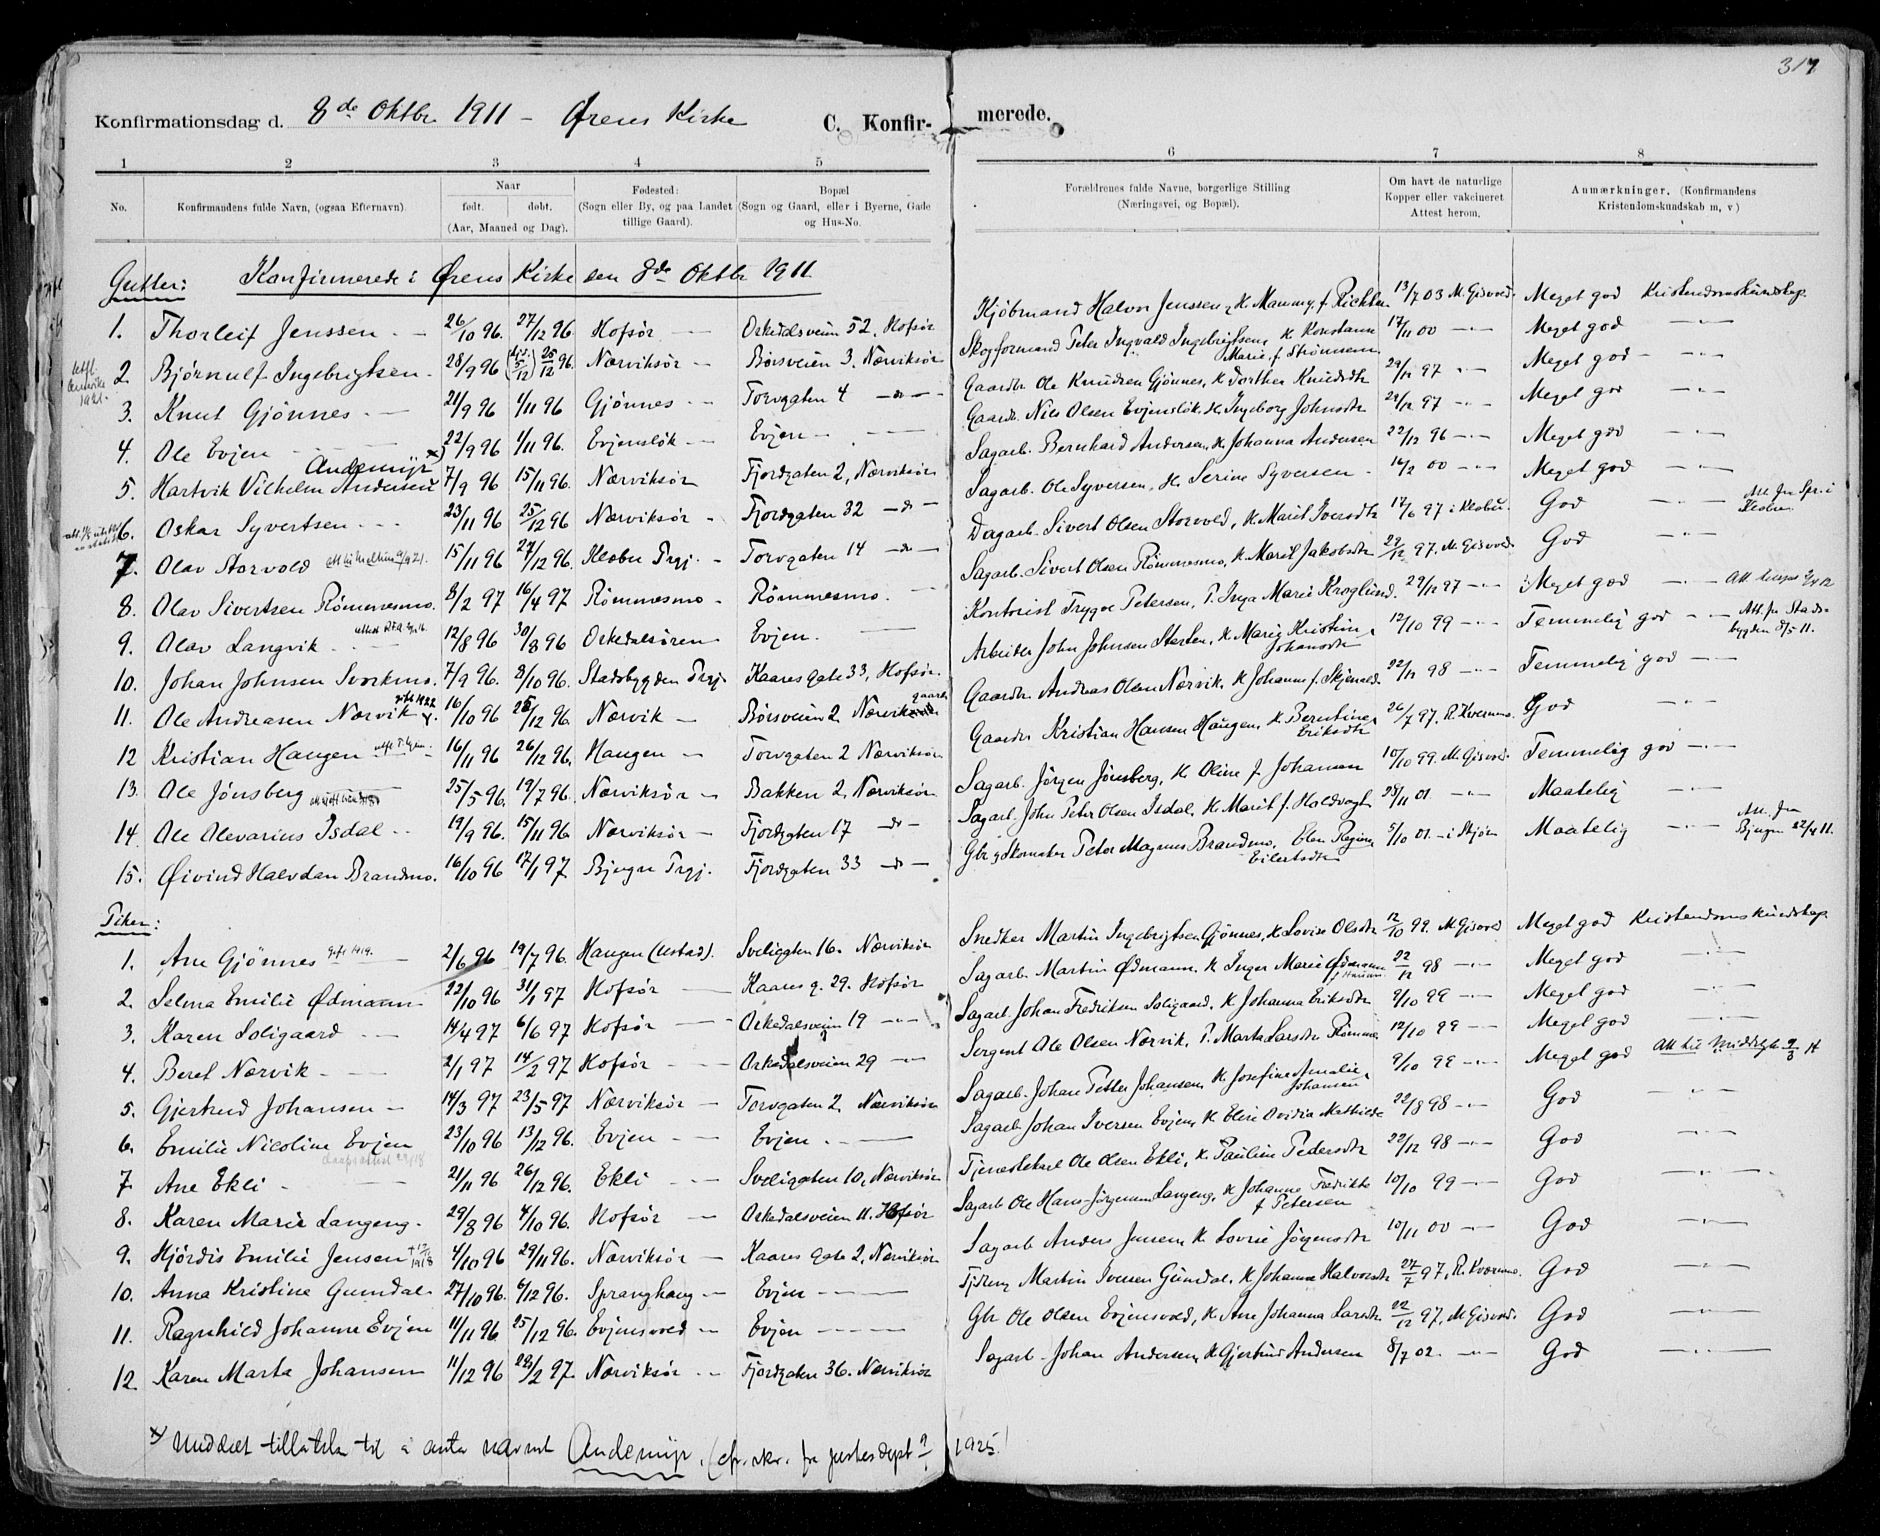 317
Konfirmationsdag d. 8de Oktbr 1911 – Ørens Kirke C. Konfir-merede.
1 2 3 4 5 6 7 8
No. Konfirmandens fulde Navn, (ogsaa Efternavn). Naar født. døbt. (Aar, Maaned og Dag). Fødested: (Sogn eller By, og paa Landet tillige Gaard). Bopæl (Sogn og Gaard, eller i Byerne, Gade og Hus-No. Forældrenes fulde Navne, borgerlige Stilling (Næringsvei, og Bopæl). Om havt de naturlige Kopper eller vakcineret Attest herom. Anmærkninger. (Konfirmandens Kristendomskundskab m, v)
Gutter: Konfirmerede i Ørens Kirke den 8de Oktbr 1911.
1. Thorleif Jenssen 26/10 96. 27/12 96 Hofsør Orkedalsveien 52, Hofsør Kjøbmand Halvor Jenssen, K. Mammy f. Richter 13/7 03 M. Gisvold. Meget god Kristendomskundskap
2. Bjørnulf Ingebrigtsen 28/9 96 25/12 96. Nærviksør Børsveien 3. Nærviksør Skogformand Peter Ingvald Ingebrigtsen, K. Konstanse Marie f. Strömsem 17/11 00 Meget god
3. Knut Gjønnes 21/9 96 1/11 96 Gjønnes Torvgaten 4 Gaardbr. Ole Knudsen Gjønnes, K. Dorthea Knudsdtr 29/12 97 Meget god
4. Ole Evjen 22/9 96 1/11 96. Evjensløk Evjen Gaardb. Nils Olsen Evjensløk, K. Ingeborg Johnsdtr 29/12 97 Meget god
Andemyr x)
5. Hartvik Vilhelm Andersen 7/9 96 15/11 96. Nærviksør Fjordgaten 2, Nærviksør Sagarb. Bernhard Andersen, K. Johanna Andersen 22/12 96 Meget god
6. Oskar Syvertsen 23/11 96 25/12 96 Nærviksør Fjordgaten 32 Sagarb. Ole Syversen, K. Serine Syversen 14/2 00 Meget god
7. Olav Storvold 15/11 96 27/12 96. Klæbu Prgj. Torvgaten 14 Dagarb. Sivert Olsen Storvold, K. Marit Iversdtr 17/6 97 i Klæbu. God Att. fra Spr. i Klæbu
8. Olav Sivertsen Rømmesmo. 8/2 97 16/4 97 Rømmesmo Rømmesmo. Sagarb. Sivert Olsen Rømmesmo, K. Marit Jakobsdtr 29/12 97. M. Gisvold. God
9. Olav Langvik 12/8 96 30/8 96 Orkedalsøren Evjen. Kontorist Trygve Petersen, P. Inga Marie Kroglund. 29/12 97 Meget god
10. Johan Johnsen Svorkmo. 7/9 96. 8/10 96. Stadsbygden Prgj. Kaares gate 33, Hofsør. Arbeider John Johnsen Stersen, K. Marie Kristine Johansdtr 12/10 99 Temmelig god Att. fra Stadsbygden 8/5 11.
11. Ole Andreasen Nærvik gift 1922 16/10 96 26/12 96. Nærvik Børsveien 2, Nærvik gaard Gaardbr. Andreas Olsen Nærvik, K. Johanna f. Skjenald. 22/12 98 Temmelig god
12 Kristian Haugen 16/11 96 26/12 96. Haugen Torvgaten 2 Nærviksør Gaardbr Kristian Hansen Haugen, K. Berntine Eriksdtr 26/7 97, R. Kvernmo. God
13. Ole Jønsberg 25/5 96. 19/7 96. Nærviksør Bakken 2, Nærviksør Sagarb. Jørgen Jønsberg, K. Oline f. Johansen 10/10 99. M. Gisvold. Temmelig god
14 Ole Olevarius Isdal 19/9 96. 15/11 96. Nærviksør Fjordgaten 17 Sagarb. John Peter Olsen Isdal, K. Marit f. Holdvagt 28/11 01. Maatelig
15. Øivind Halvdan Brandmo. 16/10 96 17/1 97 Bjugn Prgj. Fjordgaten 33 Gbr. & Skomaker Peter Magnus Brandmo, Elen Regine Eilertsdtr 5/10 01. i Skjør Maatelig Att. fra Bjugn 22/4 11.
Piker:
1. Ane Gjønnes gift 1919. 2/6 96 19/7 96. Haugen (Ustad). Sveligaten 16. Nærviksør Snedker Martin Ingebrigtsen Gjønnes, K. Lovise Olsdtr 12/10 99. M Gisvold Meget god Kristendomskundskap
2. Selma Emilie Ødmann 22/10 96 31/1 97 Hofsør Kaares g. 29. Hofsør Sagarb. Martin Ødmann. K. Inger Marie Ødmann f. Hansen 22/12 98 Meget god
3. Karen Soligaard 14/4 97 6/6 97 Hofsør Orkedalsveien 19 Sagarb. Johan Fredriksen Soligaard, K. Johanna Eriksdtr 9/10 99 Meget god
4. Beret Nærvik 2/1 97 14/2 97 Hofsør Orkedalsveien 29 Sergent Ole Olsen Nærvik, P. Marta Larsdtr Rømme 12/10 99 Meget god
5. Gjertrud Johansen 14/3 97 23/5 97 Nærviksør Torvgaten 2, Nærviksør Sagarb. Johan Petter Johansen, K. Josefine Amalie Johansen 9/10 99 Meget god
6. Emilie Nicoline Evjen 23/10 96 13/12 96. Evjen Evjen Sagarb. Johan Iversen Evjen, K. Elise Ovidia Mathilde 22/8 98 God
7 Ane Ekli 21/11 96 26/12 96. Ekli Sveligaten 10, Nærviksør Tjenestekarl Ole Olsen Ekli, K. Pauline Pedersdtr 22/12 98 God
8. Karen Marie Langeng. 29/8 96 4/10 96. Hofsør Orkedalsveien 11. Hofsør Sagarb Ole Hans Jørgensen Langeng, K. Johanne Fredrikke f. Petersen 10/10 99 God
9. Hjørdis Emilie Jensen 4/10 96 29/11 96. Nærviksør Kaares gate 2, Nærviksør Sagarb Anders Jensen, K. Lovise Jørgensdtr 10/11 00 God
10. Anna Kristine Gumdal 27/10 96. 6/12 96. Spranghaug Evjen Martin Iversen Gumdal, K. Johanna Halvorsdtr 27/7 97, R. Kvernmo. God
11. Ragnhild Johanne Evjen 11/11 96 25/12 96. Evjensvold Evjen Gbr Ole Olsen Evjensvold, K. Ane Johanna Larsdtr 22/12 97, M. Gisvold. God
12. Karen Marta Johansen 11/12 96 28/2 97. Nærviksør Fjordgaten 36. Nærviksør Sagarb. Johan Andersen, K. Gjertrud Andersen 8/7 02. God
x) Meddelt tillatelse til å anta navnet Andemyr, (cfr. skr. fra justisdept 1925!